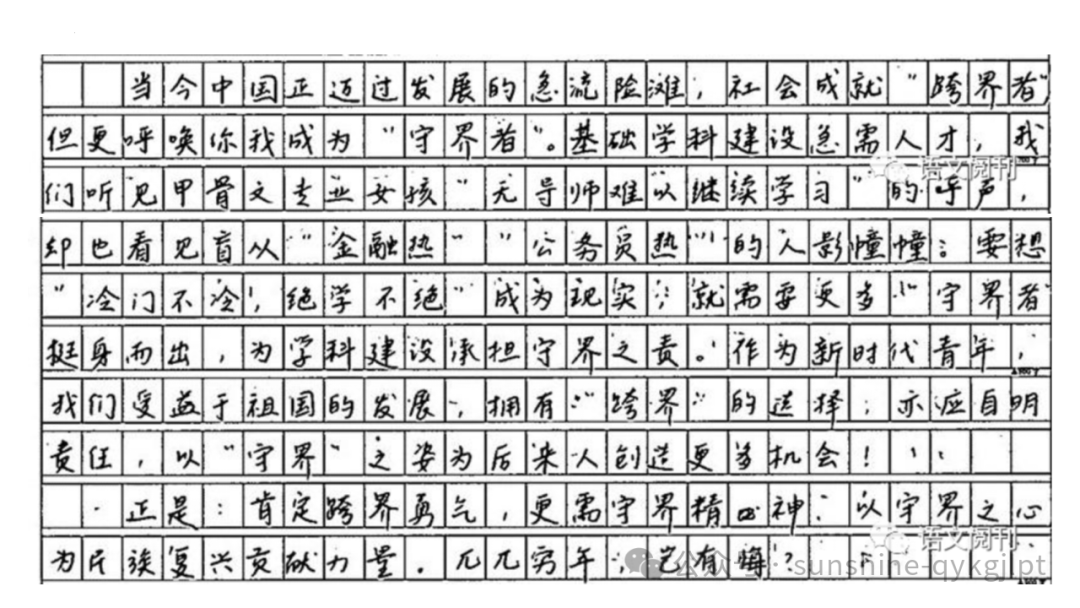 当今中国正迈过发展的急流险滩，社会成就"跨界者"，
但更呼唤你我成为"守界者"。基础学科建设急需人才，我
们听见甲骨文专业女孩"无导师难以继续学习"的呼声，
却也看见盲从"金融热""公务员热"的人影幢幢；要想
"冷门不冷，绝学不绝"成为现实，就需要更多"守界者"
挺身而出，为学科建设承担守界之责。作为新时代青年，
我们受益于祖国的发展，拥有"跨界"的选择；亦应自明
责任，以"守界"之姿为后来人创造更多机会！
正是：肯定跨界勇气，更需守界精神；以守界之心
为民族复兴贡献力量。兀兀穷年，岂有悔？
语文阅刊
语文阅刊
公众号：sunshine-qykgj.pt